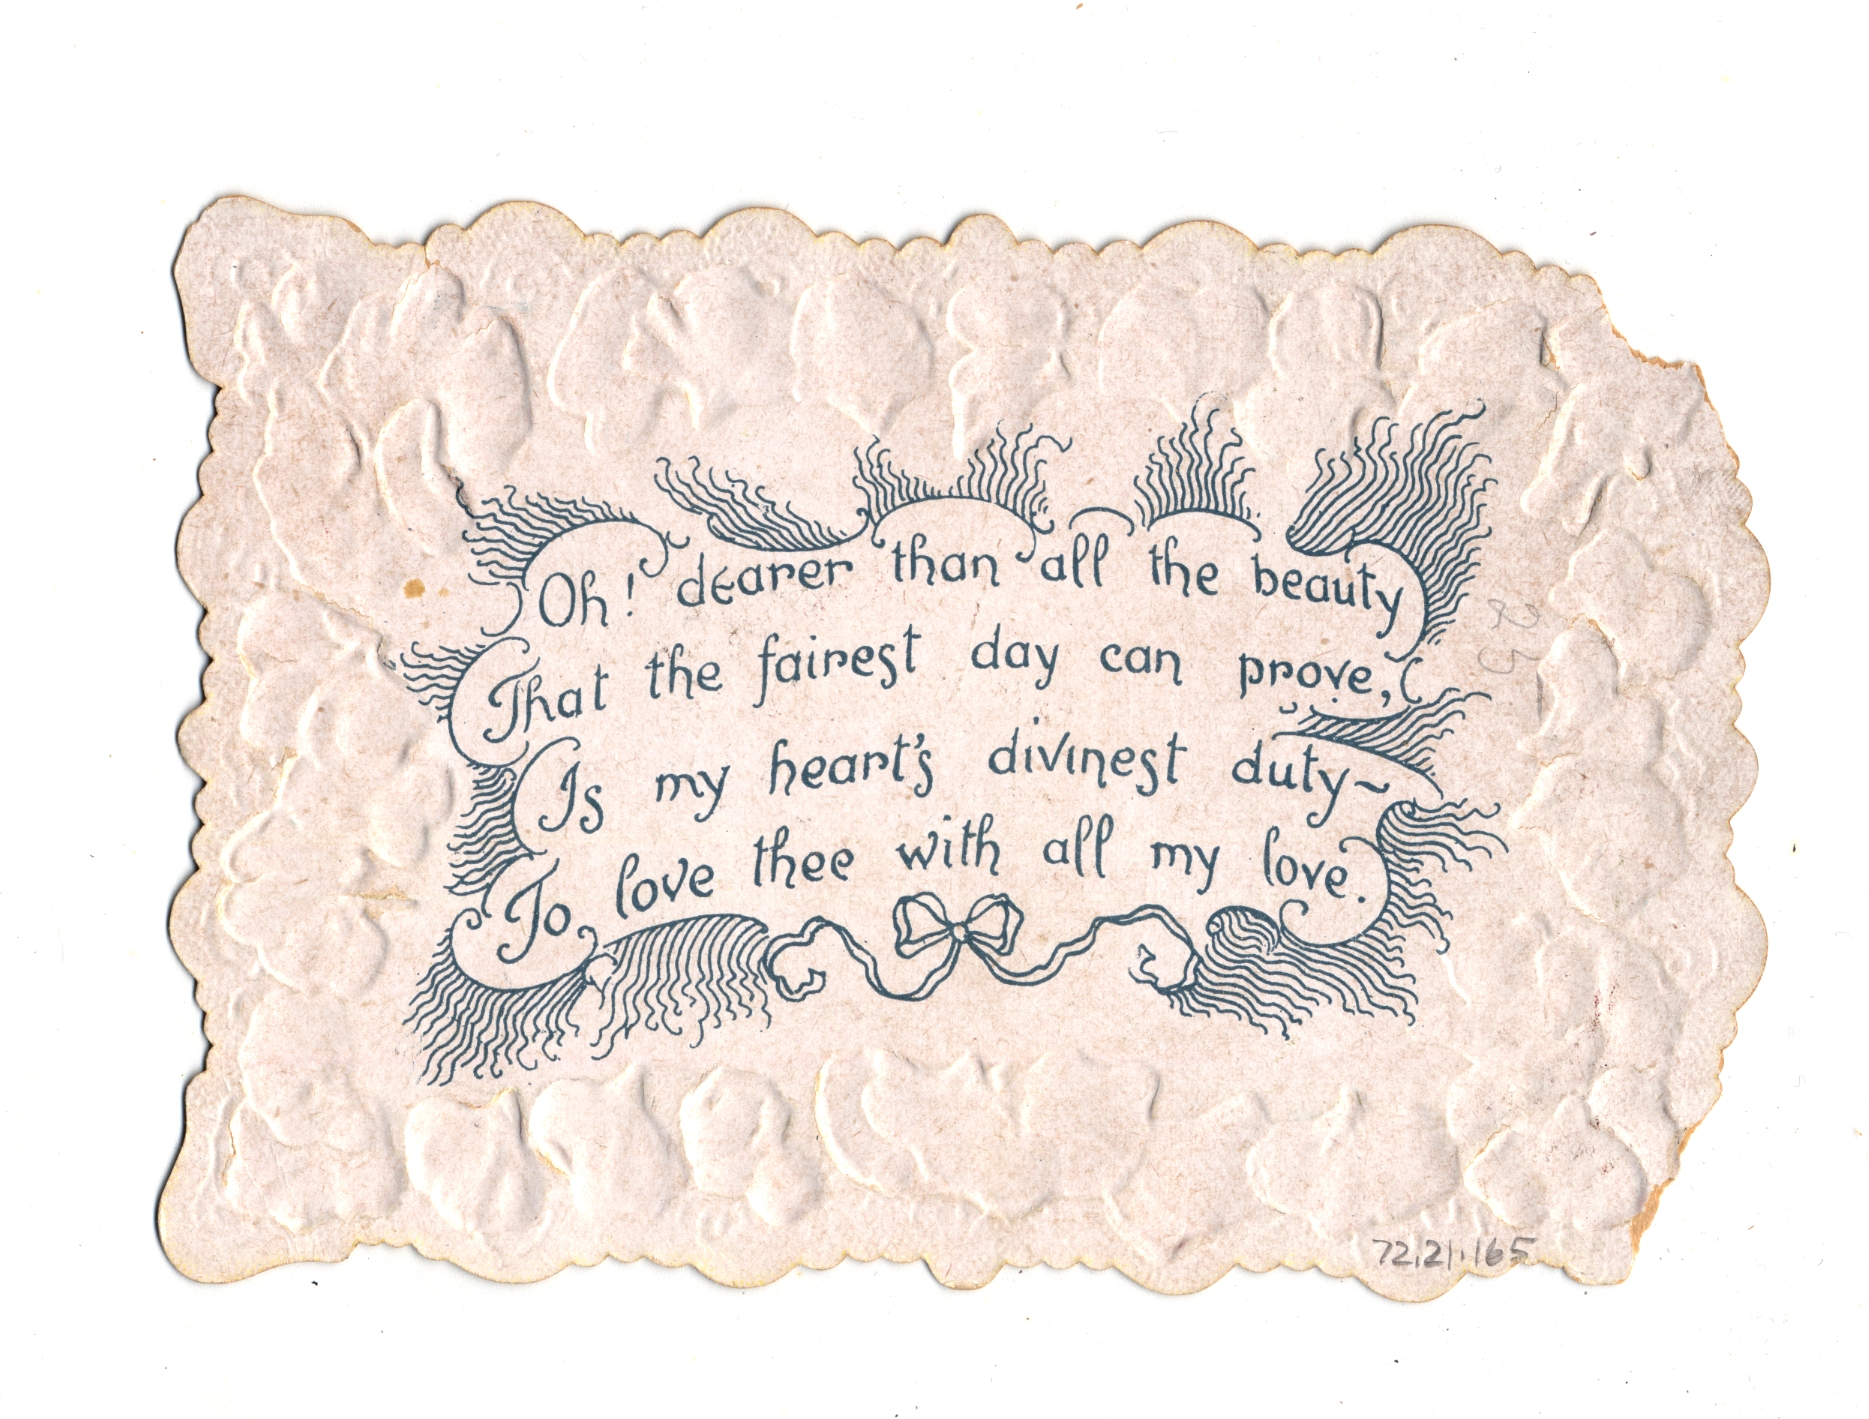 Oh! dearer than all the beauty
That the fairest day can prove,
Is my heart's divinest duty~
To love thee with all my love.
25
72.21.165